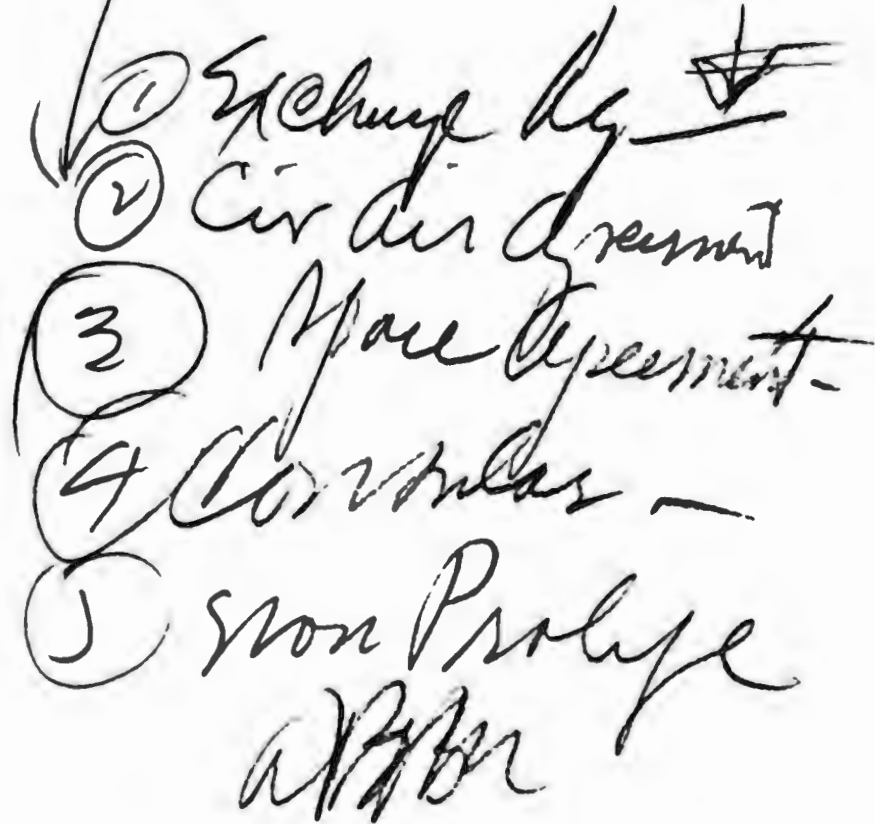 ① Exchange Ag
② Civ air Agreement
③ Space Agreement -
④ Consular —
⑤ Non Prolife